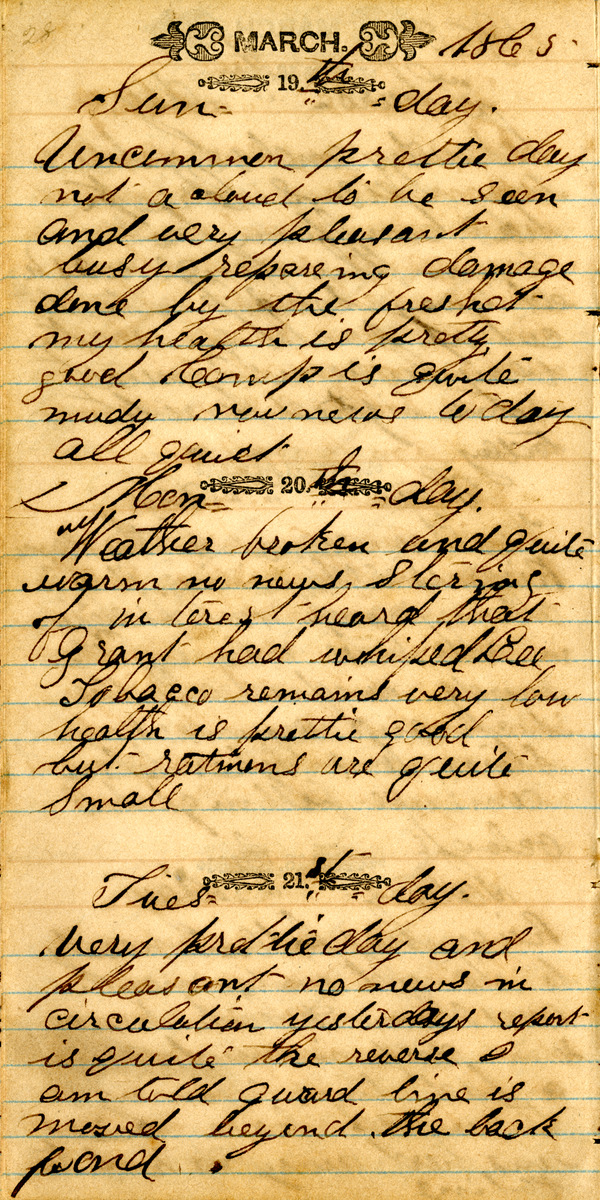 28
MARCH. 1865
19.th
Sun= " =day.
Uncommon prettie day
not a cloud to be seen
and very pleasant
busy repareing damage
done by the freshet
my health is pretty
good Camp is quite
mudy now news to day
all quiet
20.th
Mon= " =day.
Weather broken and quite
warm no news Stering
of in terest heard that
Grant had whiped Lee
Tobacco remains very low
my health is prettie good
but rations are quite
Small
21.st
Tues= " = day.
Very prettie day and
pleasant no news in
circulation yesterdays report
is quite the reverse I
am told guard line is
moved beyond the back
pond .